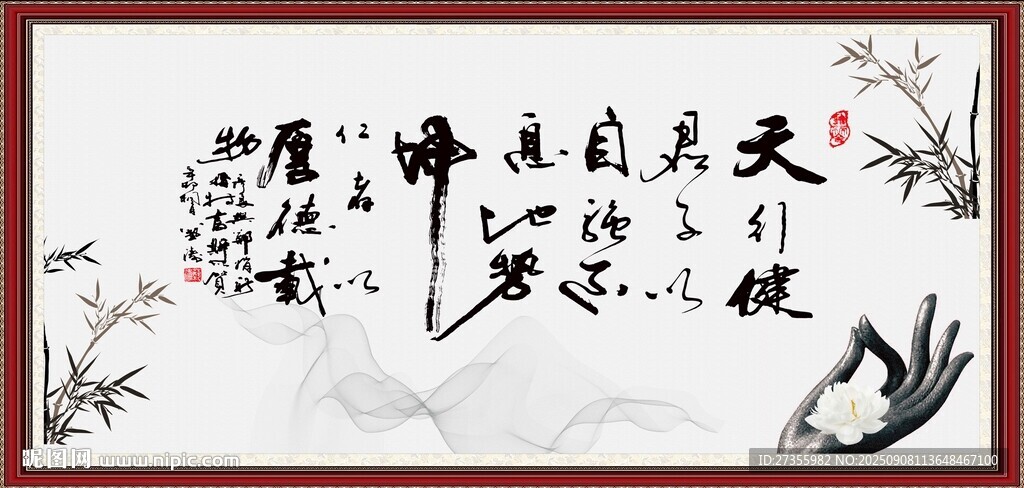 天行健
君子以
自強不
息地勢
坤
仁者以
厚德載
物
昵图网 www.nipic.com
ID:27355982 NO:20250908113648467100